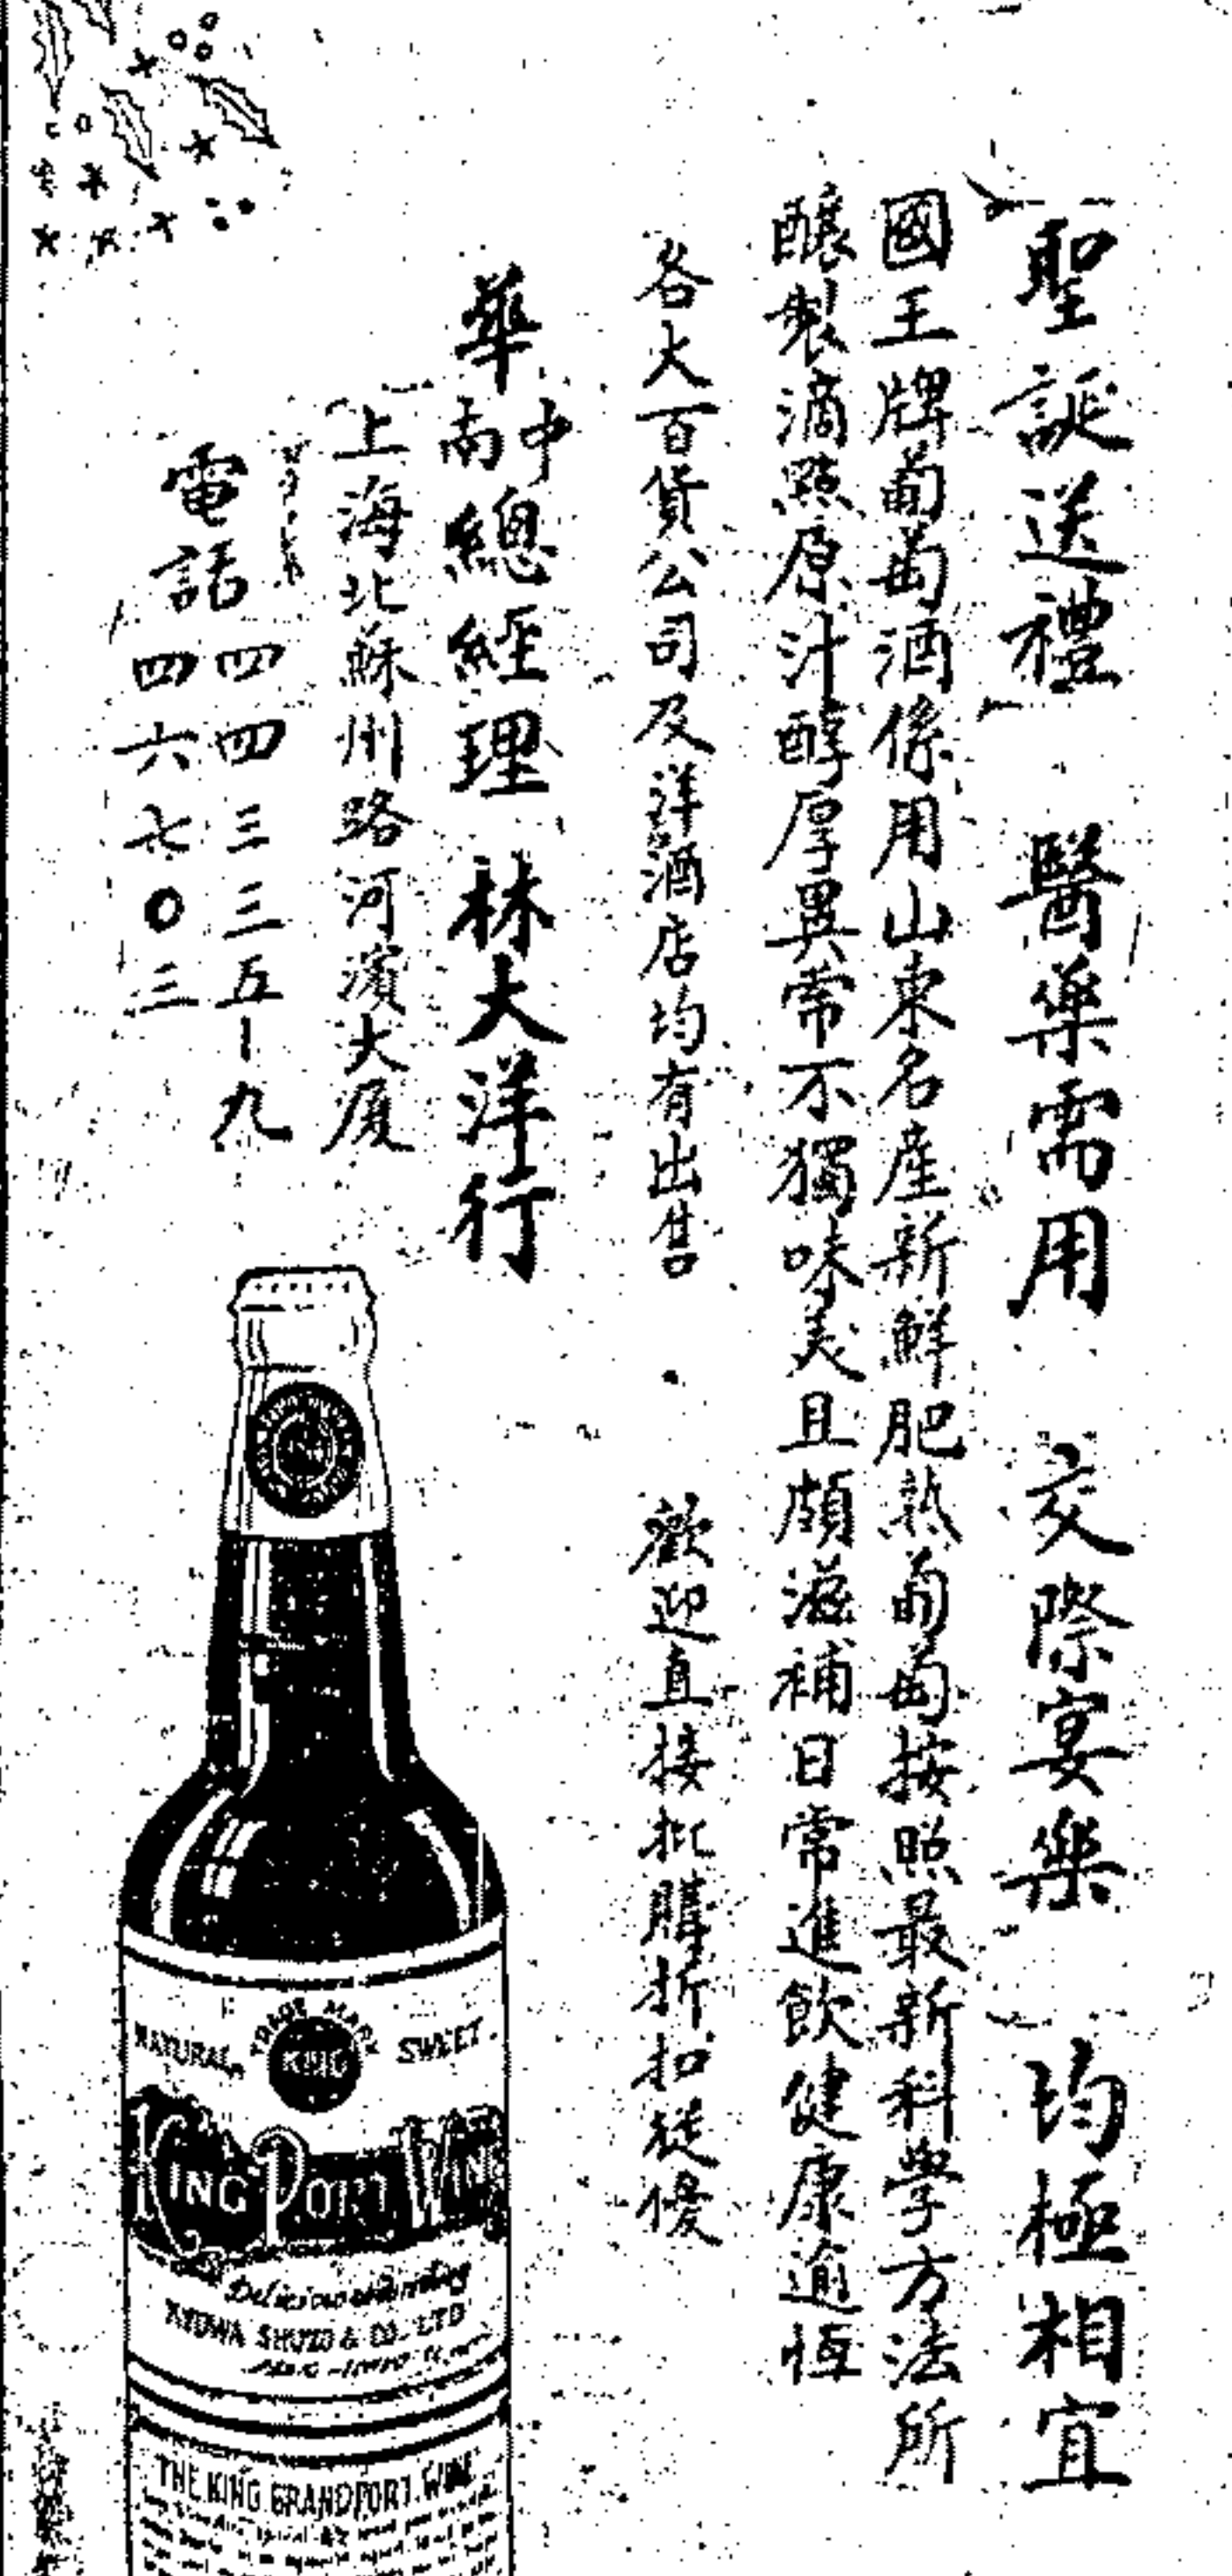 聖誕送禮 醫藥需用 交際宴樂 均極相宜
國王牌葡萄酒係用山東名產新鮮肥熟葡萄按照最新科學方法所
釀製滴點原汁醇厚異常不獨味美且頗滋補日常進飲健康逾恆
各大百貨公司及洋酒店均有出售 歡迎直接批購折扣從優
華中南總經理 林大洋行
上海北蘇州路河濱大廈
電話 四四三三五—九
四六七〇三
NATURAL TRADE MARK SWEET
KING
KING PORT WINE
Delicious
KYOWA SHUZO & CO. LTD
THE KING GRAND PORT WINE